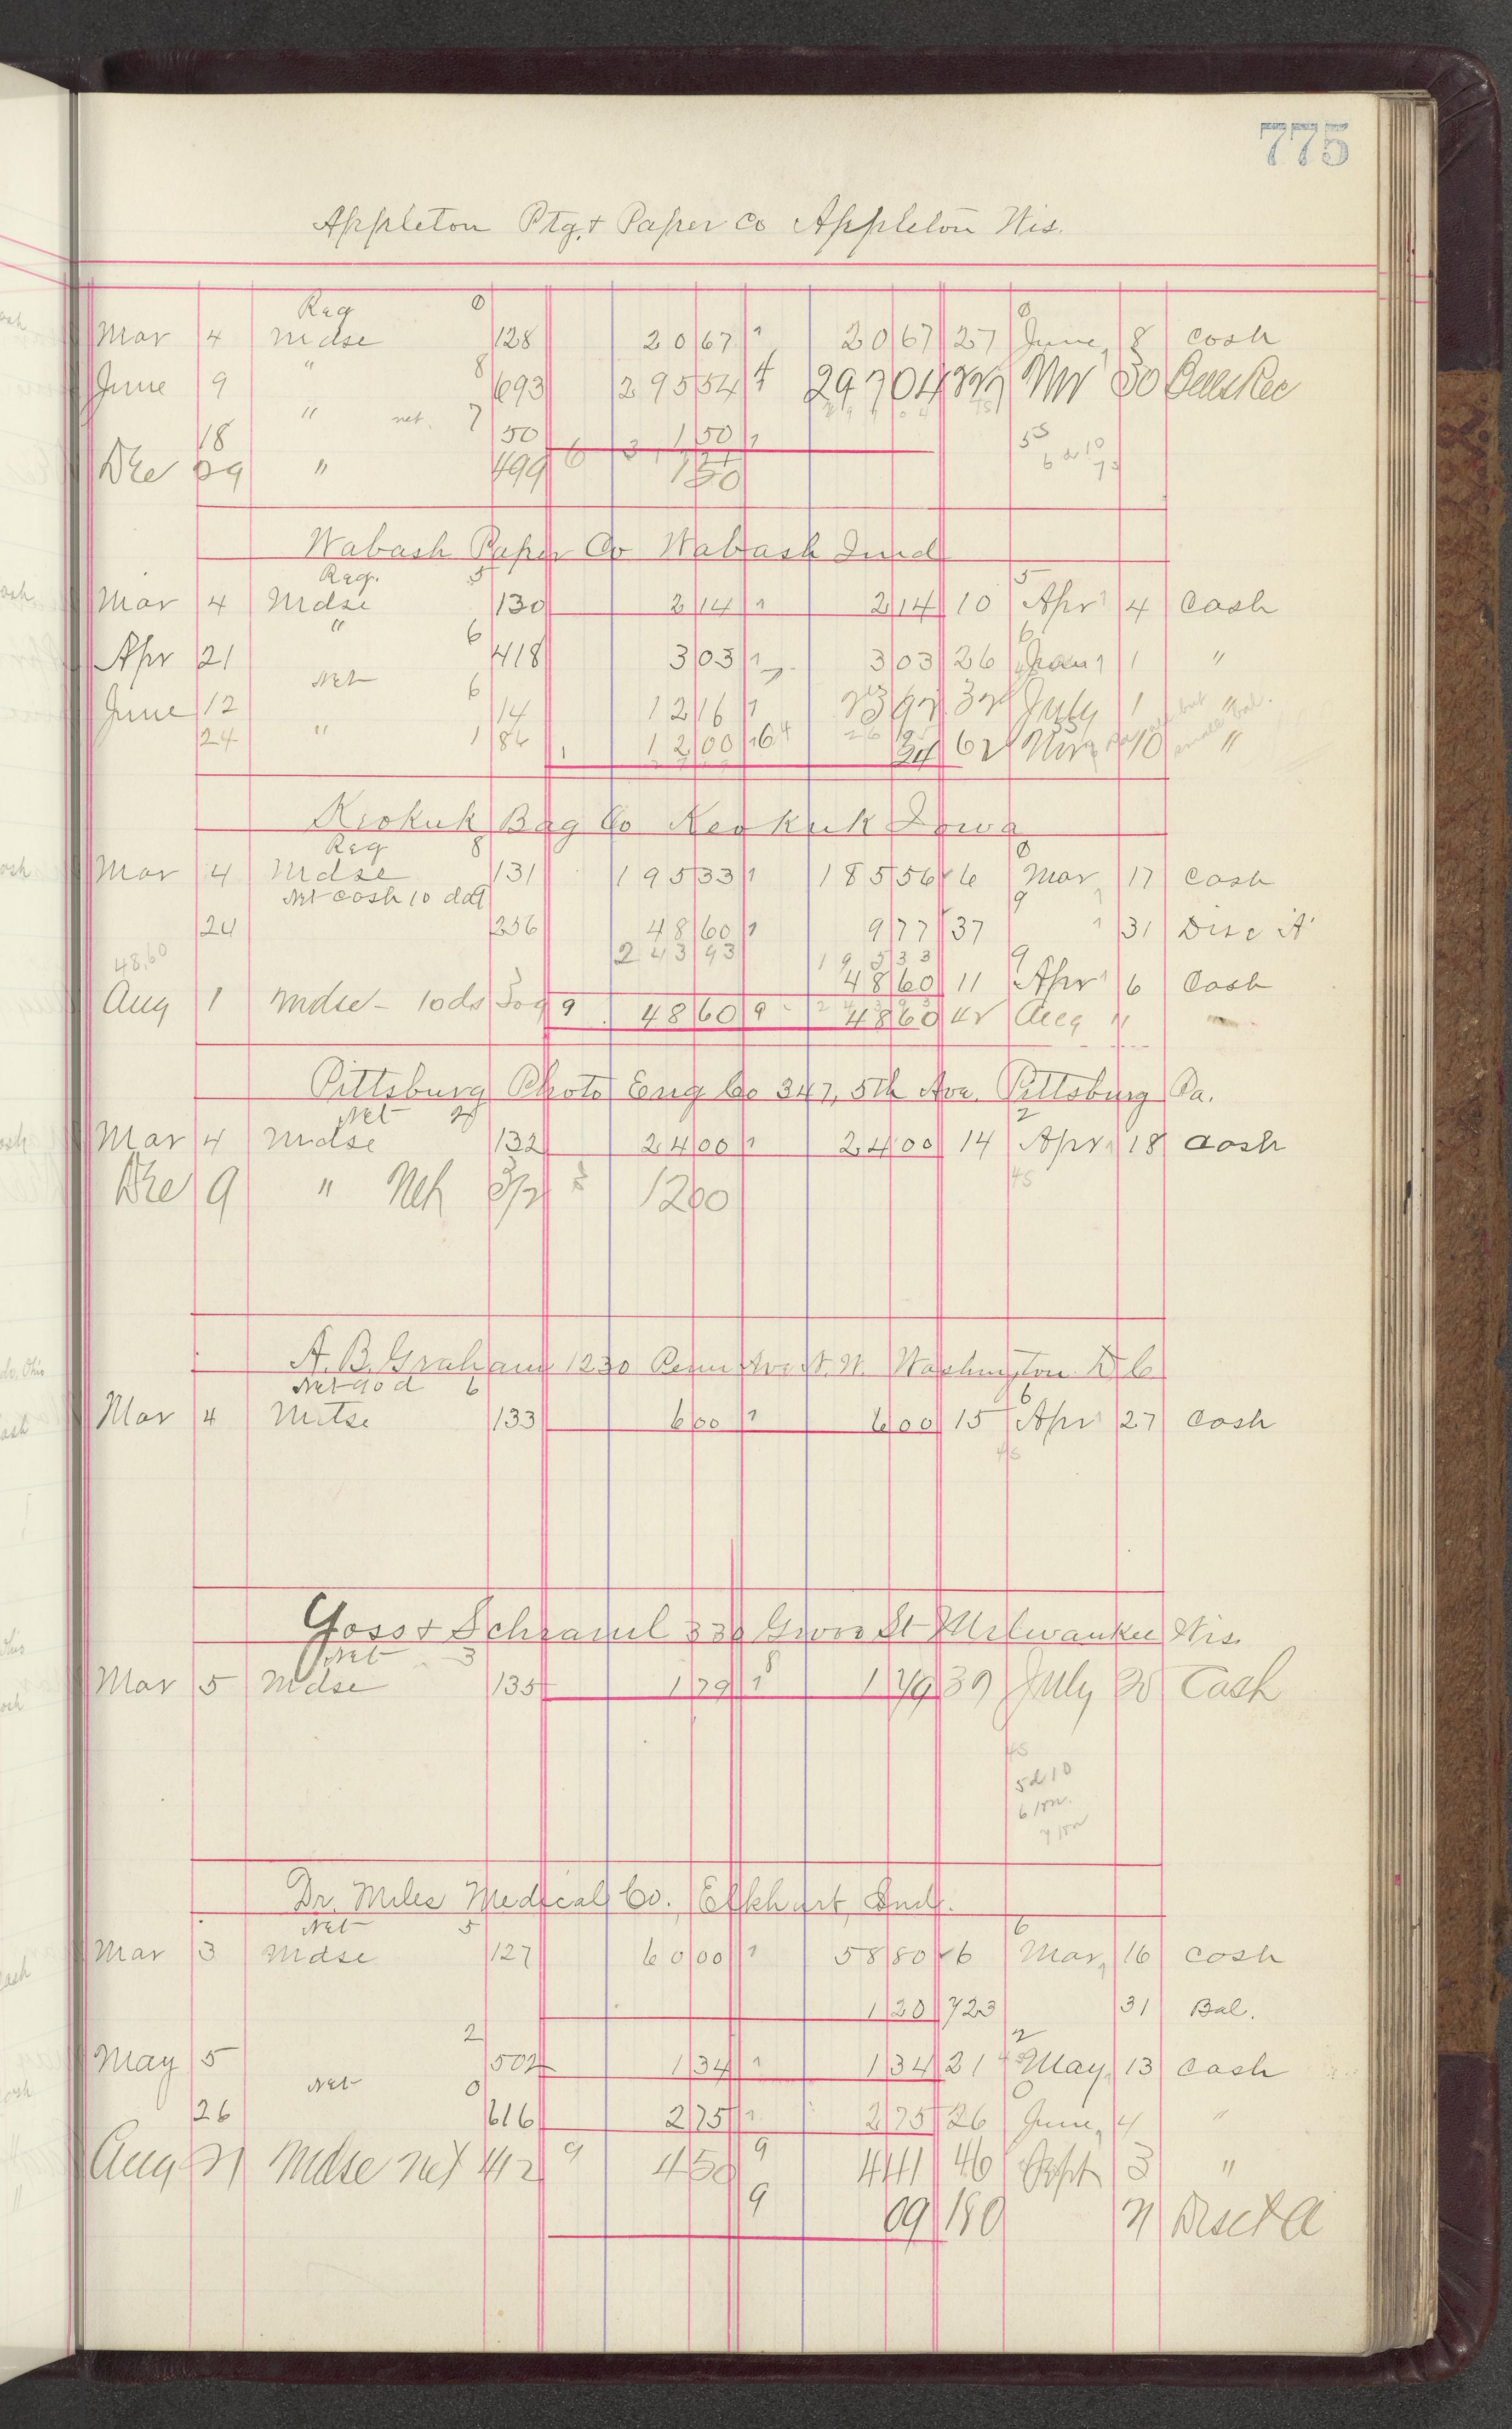 775
Appleton Ptg. & Paper Co Appleton Wis.
Reg 0 0
Mar 4 Mdse 128 20 67 1 20 67 27 June 8 Cash
June 9 " 8 693 295 54 4 297 04 Nov 30 Bills Rec
18 " net. 7 50 1 50 1
Dec 29 " 499 1 50
Wabash Paper Co Wabash Ind
Reg. 5 5
Mar 4 Mdse 130 2 14 1 2 14 10 Apr 4 Cash
Apr 21 " 6 418 3 03 1 3 03 26 6 June 1 "
June 12 Net 6 14 12 16 1 July 1 "
24 " 1 86 12 00 34 62 Nov 10 "
Keokuk Bag Co Keokuk Iowa
Reg 8 8
Mar 4 Mdse 131 195 33 1 185 56 6 Mar 17 Cash
Net cash 10 d 9 9
24 256 48 60 1 9 77 37 31 Disc "A"
243 93 195 33
48.60 9
48 60 11 Apr 6 Cash
Aug 1 Mdse - 10 ds 9 48 60 9 48 60 42 Aug "
Pittsburg Photo Eng Co 347, 5th Ave. Pittsburg Pa.
Net 2 2
Mar 4 Mdse 132 24 00 1 24 00 14 Apr 18 Cash
Dec 9 " Net 12 00
A. B. Graham 1230 Penn Ave N.W. Washington D C
Net 90 d 6 6
Mar 4 Mdse 133 6 00 1 6 00 15 Apr 27 Cash
45
Yoss & Schraml 330 Grove St Milwaukee Wis.
Net 3 8
Mar 5 Mdse 135 1 79 1 1 79 39 July 20 Cash
45
5 d 10
Dr. Miles Medical Co. Elkhart Ind.
Net 5 6
Mar 3 Mdse 127 60 00 1 58 80 6 Mar 16 Cash
1 20 723 31 Bal.
2 2
May 5 502 1 34 1 1 34 21 May 13 Cash
Net 0 0
26 616 2 75 1 2 75 26 June 4 "
Aug 21 Mdse net 412 9 4 50 9 4 41 46 Sept 3 "
9 09 180 21 Disct A